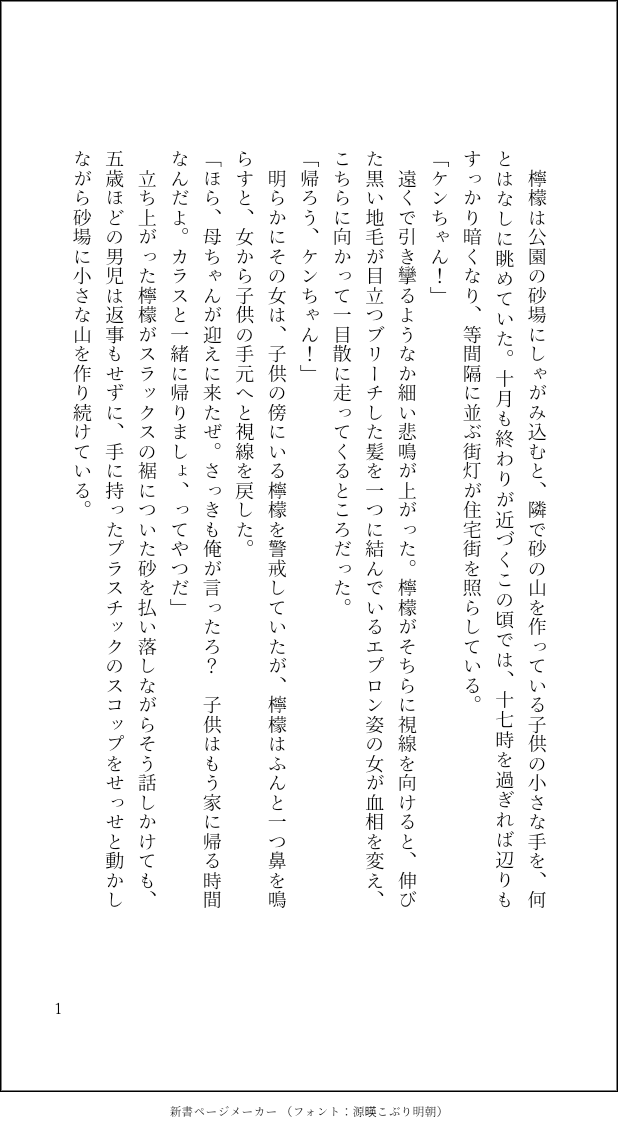 檸檬は公園の砂場にしゃがみ込むと、隣で砂の山を作っている子供の小さな手を、何
とはなしに眺めていた。十月も終わりが近づくこの頃では、十七時を過ぎれば辺りも
すっかり暗くなり、等間隔に並ぶ街灯が住宅街を照らしている。
「ケンちゃん！」
　遠くで引き攣るようなか細い悲鳴が上がった。檸檬がそちらに視線を向けると、伸び
た黒い地毛が目立つブリーチした髪を一つに結んでいるエプロン姿の女が血相を変え、
こちらに向かって一目散に走ってくるところだった。
「帰ろう、ケンちゃん！」
　明らかにその女は、子供の傍にいる檸檬を警戒していたが、檸檬はふんと一つ鼻を鳴
らすと、女から子供の手元へと視線を戻した。
「ほら、母ちゃんが迎えに来たぜ。さっきも俺が言ったろ？　子供はもう家に帰る時間
なんだよ。カラスと一緒に帰りましょ、ってやつだ」
　立ち上がった檸檬がスラックスの裾についた砂を払い落しながらそう話しかけても、
五歳ほどの男児は返事もせずに、手に持ったプラスチックのスコップをせっせと動かし
ながら砂場に小さな山を作り続けている。
1
新書ページメーカー （フォント：源暎こぶり明朝）